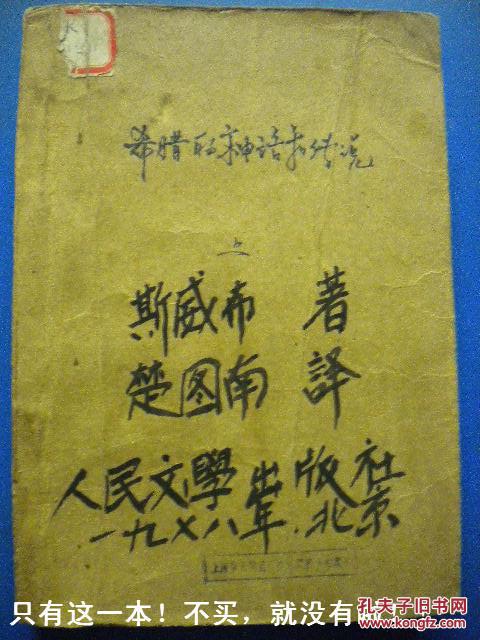 希腊的神话和传说
上
斯威布 著
楚图南 譯
人民文學出版社
一九七八年.北京
孔夫子旧书网
只有这一本！不买，就没有